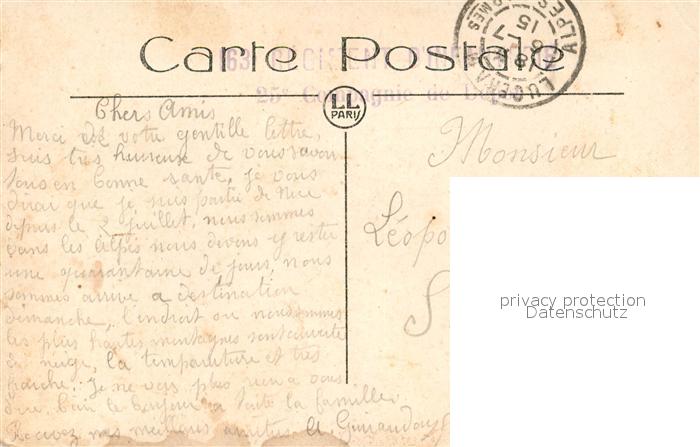 Carte Postale
163e REGIMENT D'INFANTERIE
25e Compagnie de Dépôt
LUCERAM
15 7
ALPES MARMES
LL
PARIS
Chers Amis
Merci de votre gentille lettre,
suis très heureuse de vous savoir
tous en bonne santé, je vous
dirai que je suis partie de Nice
depuis le 2 juillet, nous sommes
dans les Alpes nous devons y rester
une quarantaine de jours, nous
sommes arrivé a destination
dimanche, l'endroit ou nous sommes
les plus hautes montagnes sont couverte
de neige, la temparature et très
fraiche. Je ne vois plus rien a vous
dire, bien le bonjour a toute la famille.
Recevez mes meilleurs amitiés A.
Monsieur
Léopo
S
privacy protection
Datenschutz